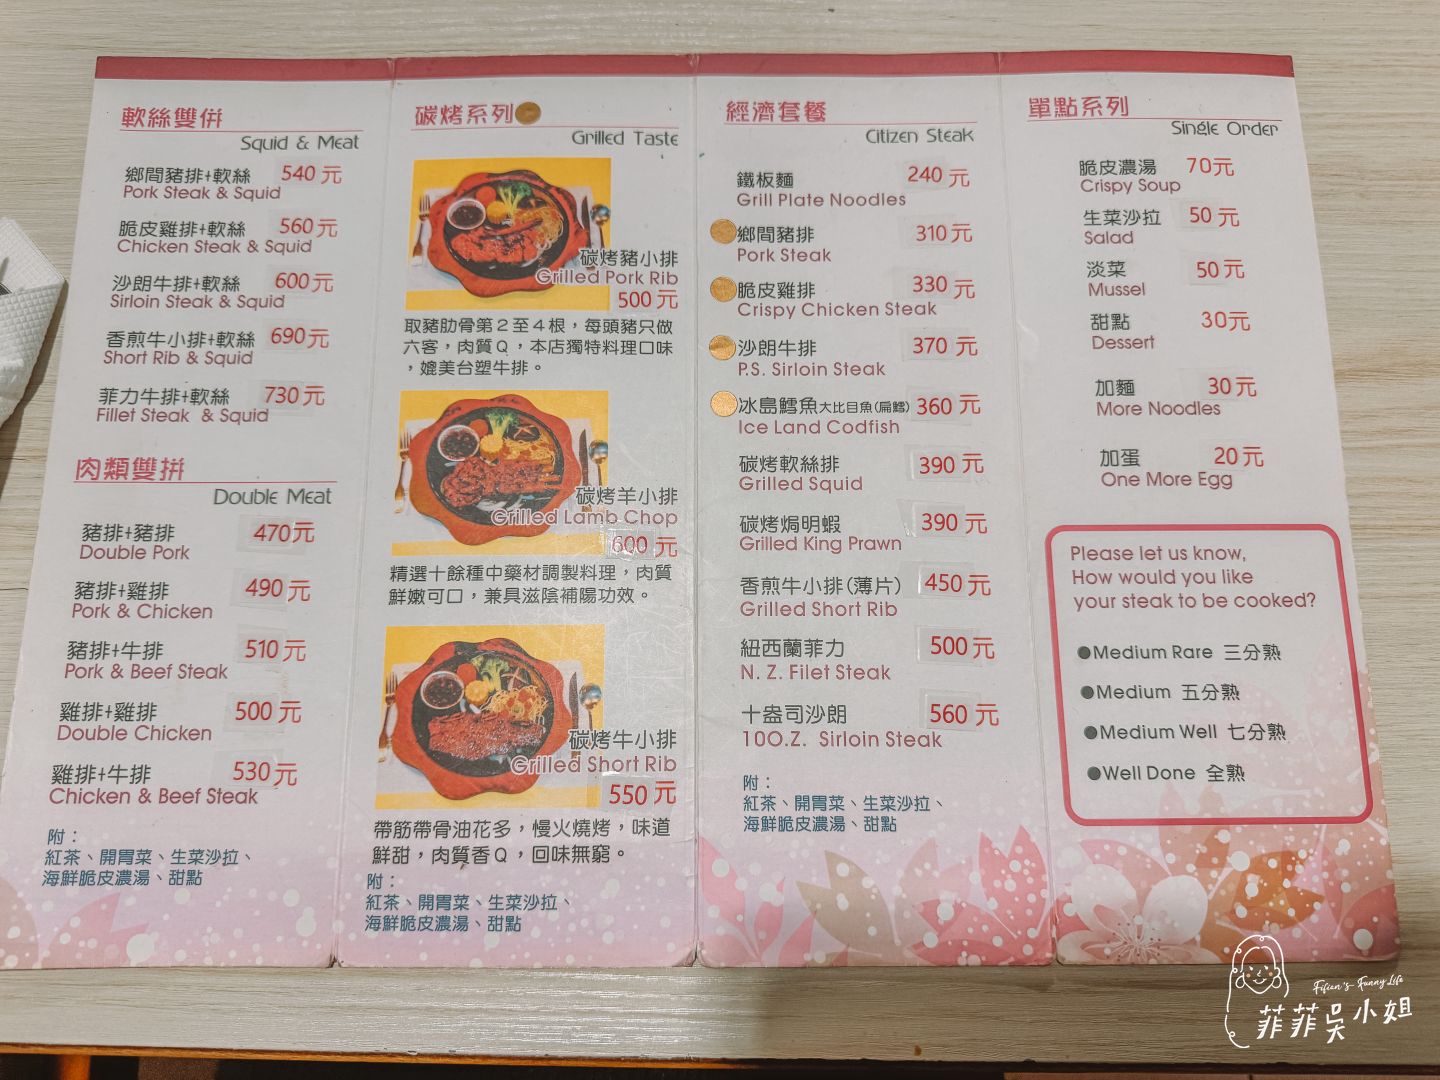 軟絲雙併
Squid & Meat
鄉間豬排+軟絲 540元
Pork Steak & Squid
脆皮雞排+軟絲 560元
Chicken Steak & Squid
沙朗牛排+軟絲 600元
Sirloin Steak & Squid
香煎牛小排+軟絲 690元
Short Rib & Squid
菲力牛排+軟絲 730元
Fillet Steak & Squid
肉類雙拼
Double Meat
豬排+豬排 470元
Double Pork
豬排+雞排 490元
Pork & Chicken
豬排+牛排 510元
Pork & Beef Steak
雞排+雞排 500元
Double Chicken
雞排+牛排 530元
Chicken & Beef Steak
附：
紅茶、開胃菜、生菜沙拉、
海鮮脆皮濃湯、甜點
碳烤系列
Grilled Taste
碳烤豬小排
Grilled Pork Rib
500元
取豬肋骨第2至4根，每頭豬只做
六客，肉質Q，本店獨特料理口味
，媲美台塑牛排。
碳烤羊小排
Grilled Lamb Chop
600元
精選十餘種中藥材調製料理，肉質
鮮嫩可口，兼具滋陰補陽功效。
碳烤牛小排
Grilled Short Rib
550元
帶筋帶骨油花多，慢火燒烤，味道
鮮甜，肉質香Q，回味無窮。
附：
紅茶、開胃菜、生菜沙拉、
海鮮脆皮濃湯、甜點
經濟套餐
Citizen Steak
鐵板麵 240元
Grill Plate Noodles
鄉間豬排 310元
Pork Steak
脆皮雞排 330元
Crispy Chicken Steak
沙朗牛排 370元
P.S. Sirloin Steak
冰島鱈魚大比目魚(扁鱈) 360元
Ice Land Codfish
碳烤軟絲排 390元
Grilled Squid
碳烤焗明蝦 390元
Grilled King Prawn
香煎牛小排(薄片) 450元
Grilled Short Rib
紐西蘭菲力 500元
N. Z. Filet Steak
十盎司沙朗 560元
10O.Z. Sirloin Steak
附：
紅茶、開胃菜、生菜沙拉、
海鮮脆皮濃湯、甜點
單點系列
Single Order
脆皮濃湯 70元
Crispy Soup
生菜沙拉 50元
Salad
淡菜 50元
Mussel
甜點 30元
Dessert
加麵 30元
More Noodles
加蛋 20元
One More Egg
Please let us know,
How would you like
your steak to be cooked?
●Medium Rare 三分熟
●Medium 五分熟
●Medium Well 七分熟
●Well Done 全熟
Fifien's Funny Life
菲菲吳小姐